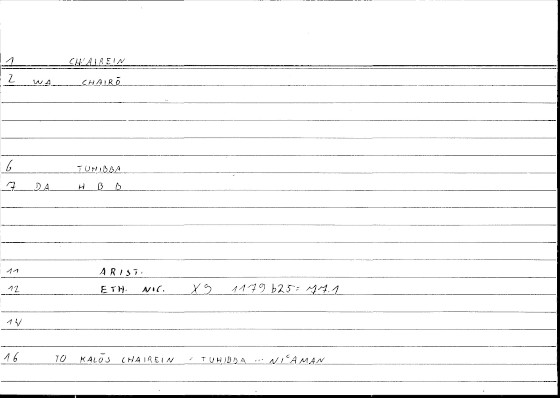 1 CHAIREIN
2 WA CHAIRŌ
6 TUHIBBA
7 DA H B B
11 ARIST.
12 ETH. NIC. X9 1179b25=
14
16 TO KALŌS CHAIREIN - TUHIBBA ... NIʿAMAN